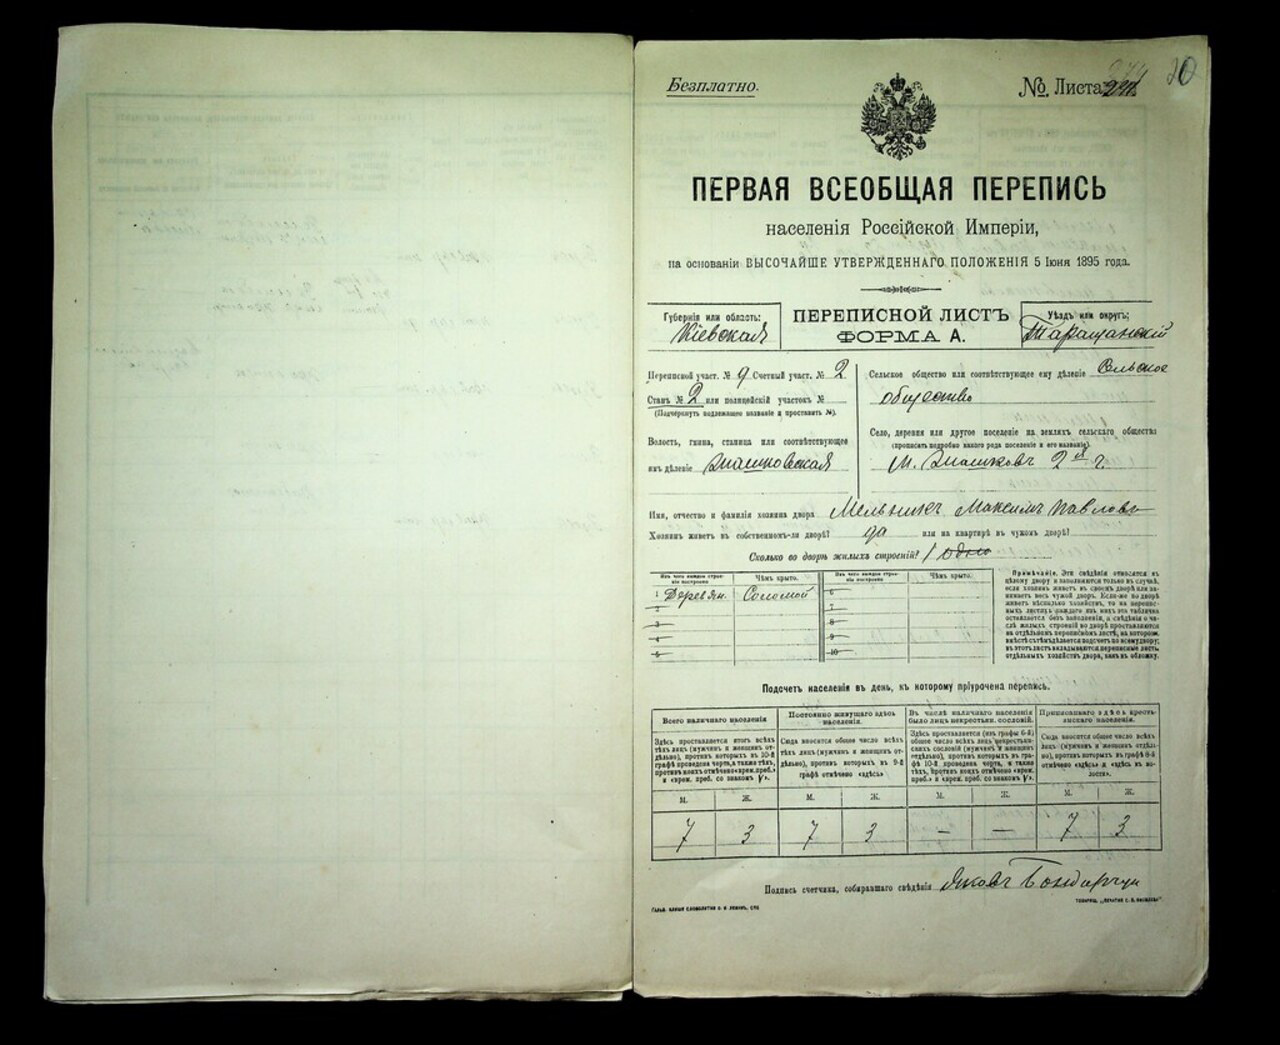 Безплатно.
№. Листа
ПЕРВАЯ ВСЕОБЩАЯ ПЕРЕПИСЬ
населенія Россійской Имперіи,
на основаніи ВЫСОЧАЙШЕ УТВЕРЖДЕННАГО ПОЛОЖЕНІЯ 5 Іюня 1895 года.
Губернія или область:
Кіевская
ПЕРЕПИСНОЙ ЛИСТЪ
ФОРМА А.
Уѣздъ или округъ:
Таращанскій
Переписной участ. № 9 Счетный участ. № 2
Станъ № 2 или полицейскій участокъ №
(Подчеркнуть надлежащее названіе и проставить №).
Волость, гмина, станица или соотвѣтствующее
имъ дѣленіе
Сельское общество или соотвѣтствующее ему дѣленіе Сельское
общество
Село, деревня или другое поселеніе на земляхъ сельскаго общества
(прописать подробно какого рода поселеніе и его названіе).
2я ч.
Имя, отчество и фамилія хозяина двора Мельникъ Максимъ Павловъ
Хозяинъ живетъ въ собственномъ-ли дворѣ? да или на квартирѣ въ чужомъ дворѣ?
Сколько во дворѣ жилыхъ строеній? 1 одно
Изъ чего каждое строе-
ніе построено
Чѣмъ крыто.
Изъ чего каждое строе-
ніе построено
Чѣмъ крыто.
1 Деревян. Соломой 6
2 7
3 8
4 9
5 10
Примѣчаніе. Эти свѣдѣнія относятся къ
цѣлому двору и заполняются только въ случаѣ,
если хозяинъ живетъ въ своемъ дворѣ или за-
нимаетъ весь чужой дворъ. Если-же во дворѣ
живетъ нѣсколько хозяйствъ, то на перепис-
ныхъ листахъ каждаго изъ нихъ эта табличка
оставляется безъ заполненія, а свѣдѣнія о чи-
слѣ жилыхъ строеній во дворѣ проставляются
на отдѣльномъ переписномъ листѣ, на которомъ
вмѣстѣ съ тѣмъ дѣлается подсчетъ по всему двору;
въ этотъ листъ вкладываются переписные листы
отдѣльныхъ хозяйствъ двора, какъ въ обложку.
Подсчетъ населенія въ день, къ которому пріурочена перепись.
Всего наличнаго населенія
Здѣсь проставляется итогъ всѣхъ
тѣхъ лицъ (мужчинъ и женщинъ от-
дѣльно), противъ которыхъ въ 10-й
графѣ проведена черта, а также тѣхъ,
противъ коихъ отмѣчено «врем. преб.»
и «врем. преб. со знакомъ V».
Постоянно живущаго здѣсь
населенія.
Сюда вносится общее число всѣхъ
тѣхъ лицъ (мужчинъ и женщинъ от-
дѣльно), противъ которыхъ въ 9-й
графѣ отмѣчено «здѣсь»
Въ числѣ наличнаго населенія
было лицъ некрестьян. сословій.
Здѣсь проставляется (изъ графы 6-й)
общее число всѣхъ лицъ некрестьян-
скихъ сословій (мужчинъ и женщинъ
отдѣльно), противъ которыхъ въ гра-
фѣ 10-й проведена черта, а также
тѣхъ, противъ коихъ отмѣчено «врем.
преб.» и «врем. преб. со знакомъ V».
Приписаннаго здѣсь кресть-
янскаго населенія.
Сюда вносится общее число всѣхъ
лицъ (мужчинъ и женщинъ отдѣль-
но), противъ которыхъ въ графѣ 8-й
отмѣчено «здѣсь» и «здѣсь въ во-
лости».
М. Ж. М. Ж. М. Ж. М. Ж.
7 3 7 3 — — 7 3
Подпись счетчика, собиравшаго свѣдѣнія Яковъ Бондарчук